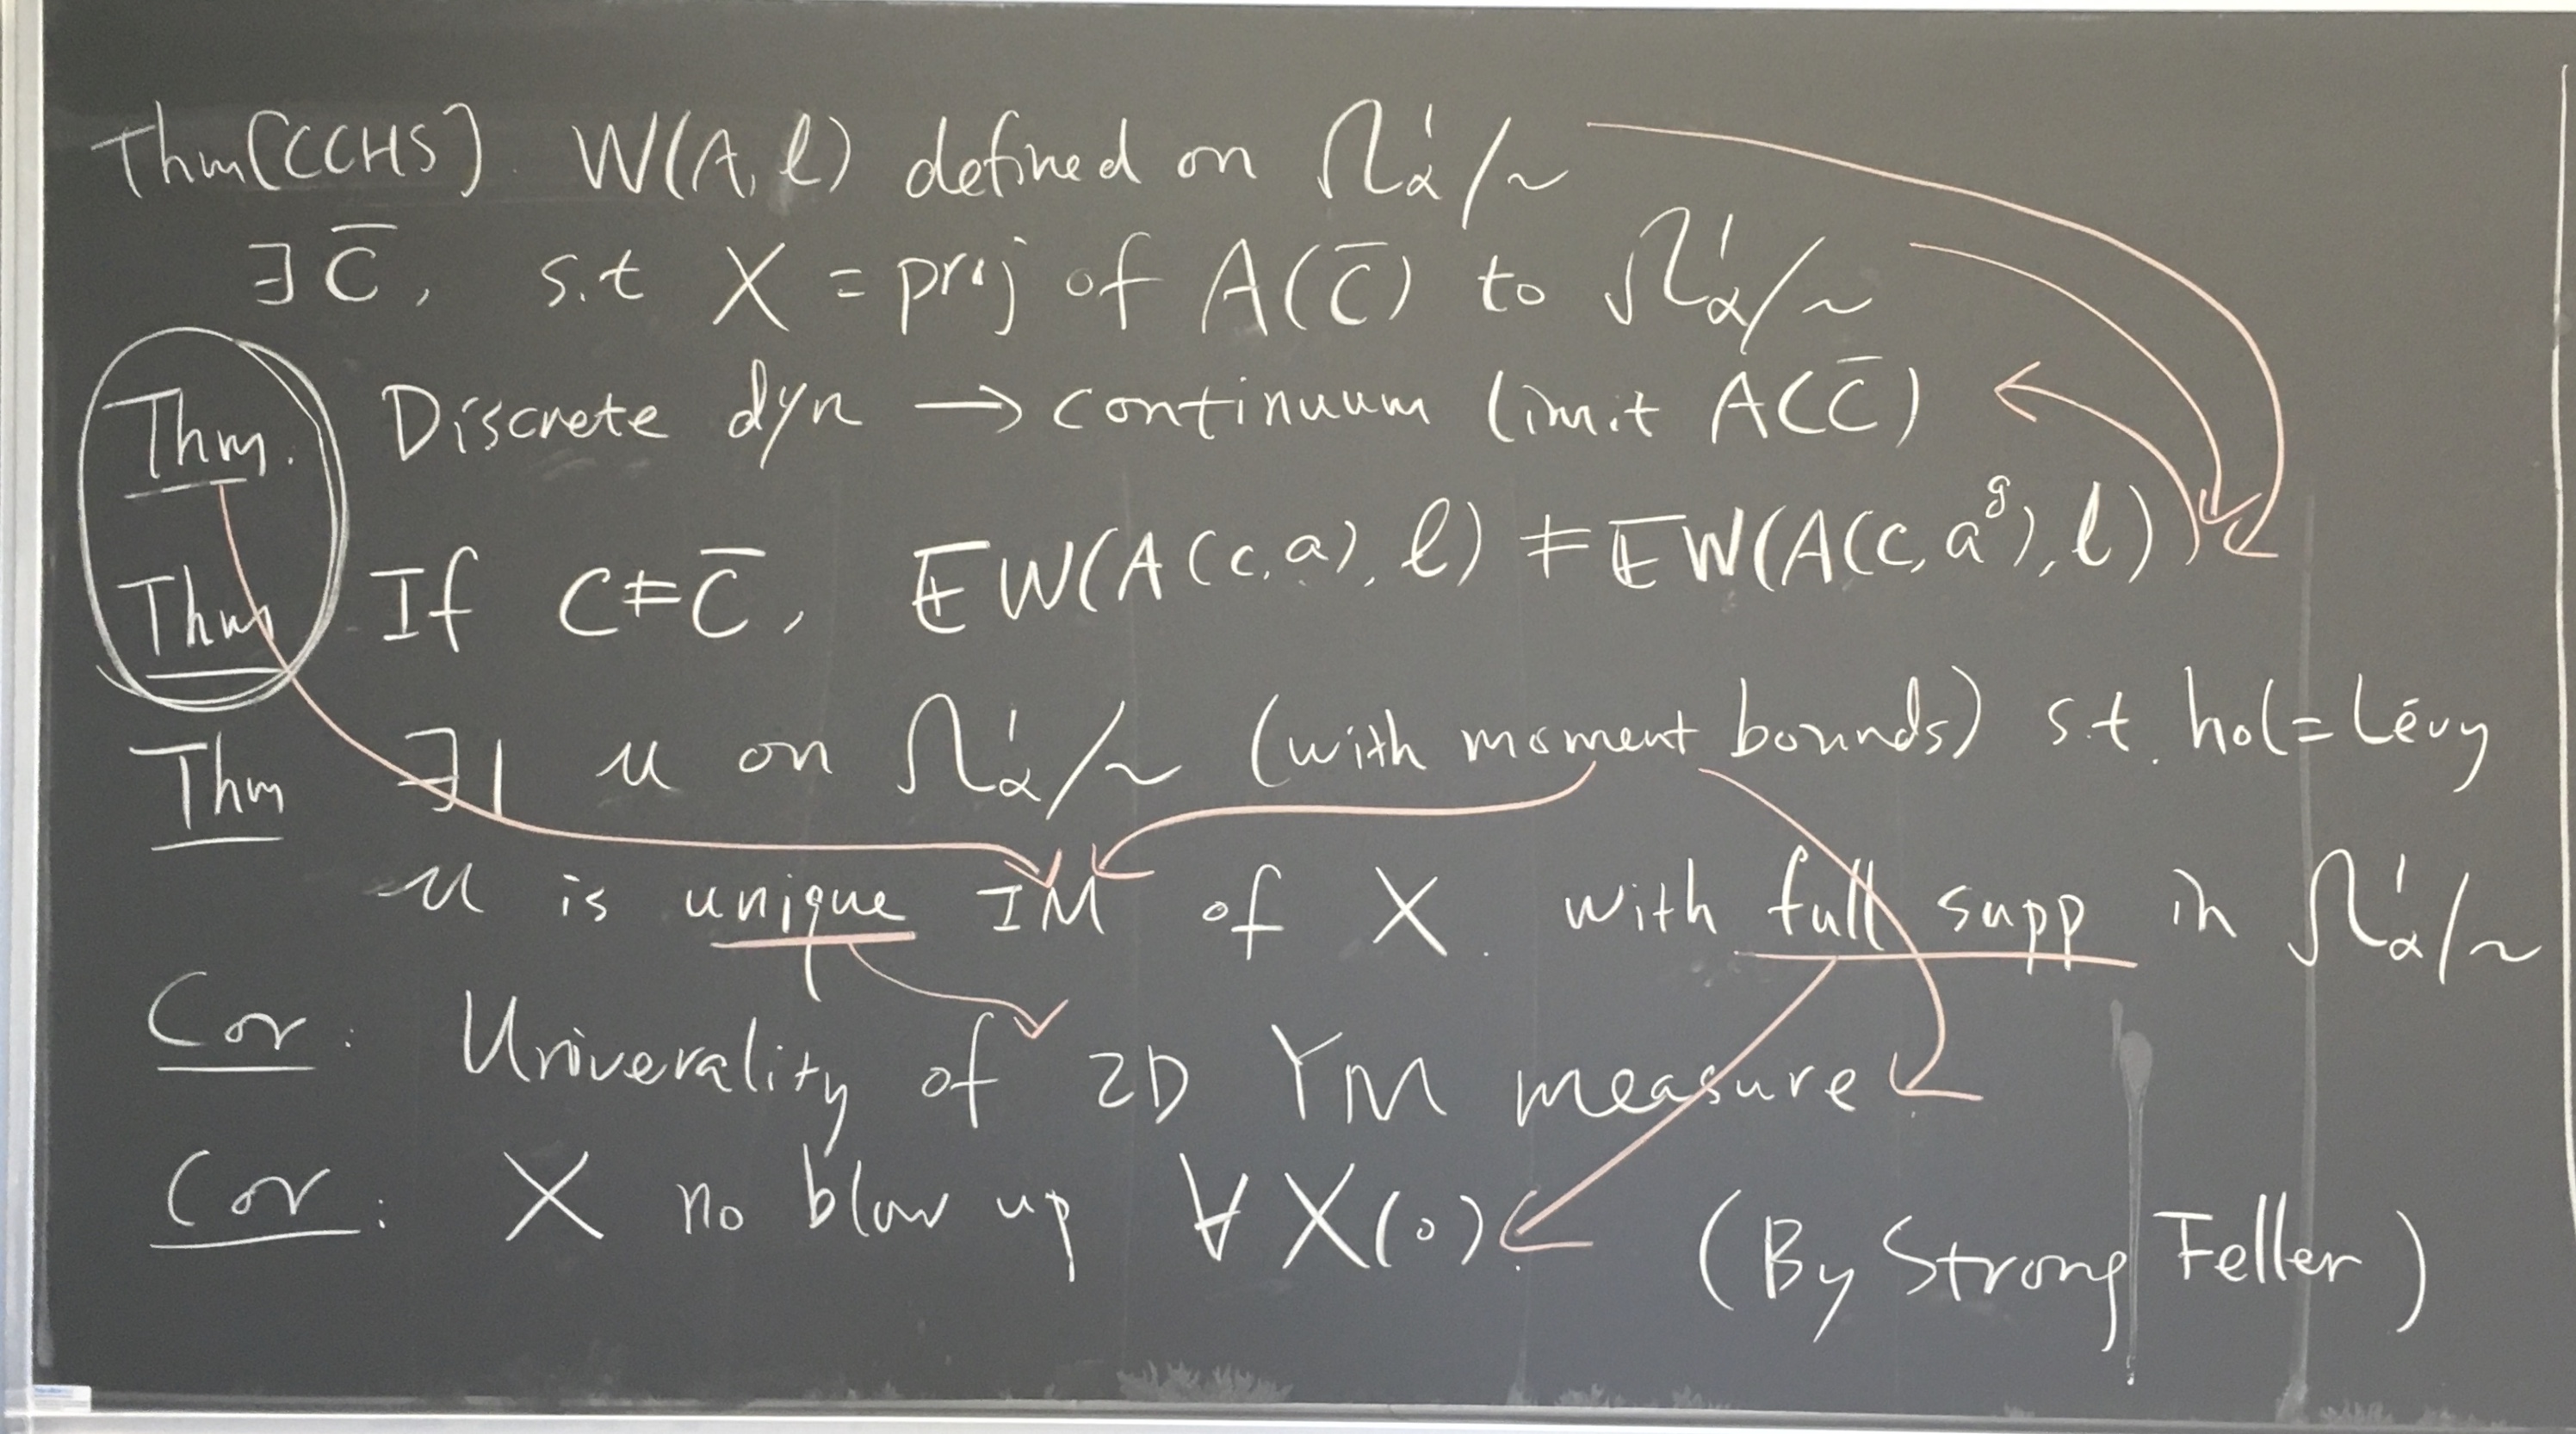 Thm[CCHS] W(A, ℓ) defined on Ω¹_α/~
∃ C̄, s.t X = proj of A(C̄) to Ω¹_α/~
Thm. Discrete dyn → continuum limit A(C̄)
Thm If C ≠ C̄, 𝔼W(A(c,a), ℓ) ≠ 𝔼W(A(c,a^g), ℓ)
Thm ∃| μ on Ω¹_α/~ (with moment bounds) s.t. hol = Lévy
μ is unique IM of X. with full supp in Ω¹_α/~
Cor: Univerality of 2D YM measure
Cor: X no blow up ∀ X(0) (By Strong Feller)